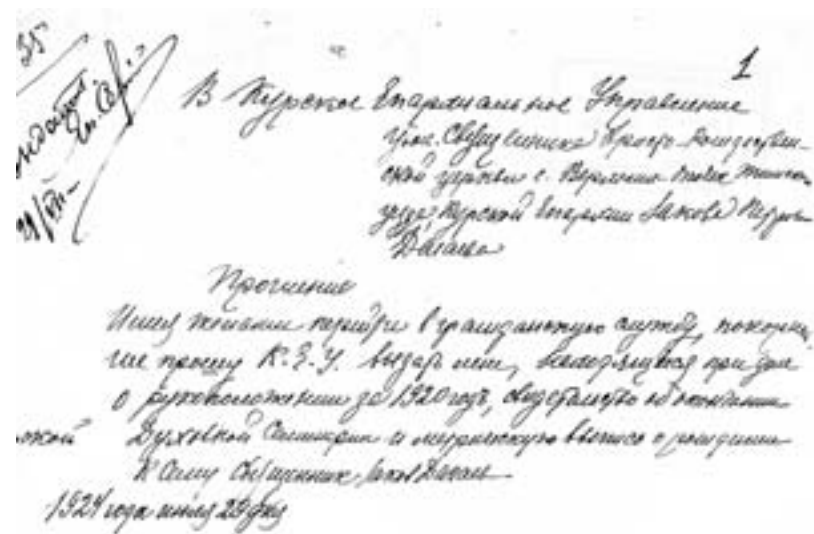 35
1
В Курское Епархиальное Управление
Священника Христо-Рождествен-
ской церкви с.
уезда Курской Епархии Иакова
Дагаева
Прошение
Имея желание перейти в гражданскую службу, покорней-
ше прошу К.Е.У. выдать мне, находящиеся при деле
о рукоположении за 1920 годъ, свидетельство об окончании
Духовной Семинарии и метрическую выпись о рождении
К сему Священник Иаков Дагаев
1924 года июля 29 дня